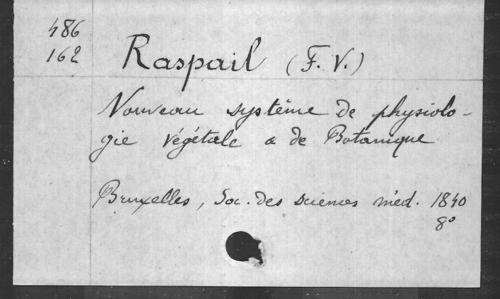 486
162
Raspail (F. V.)
Nouveau système de physiolo-
gie végétale & de Botanique
Bruxelles, Soc. des sciences méd. 1840
8°